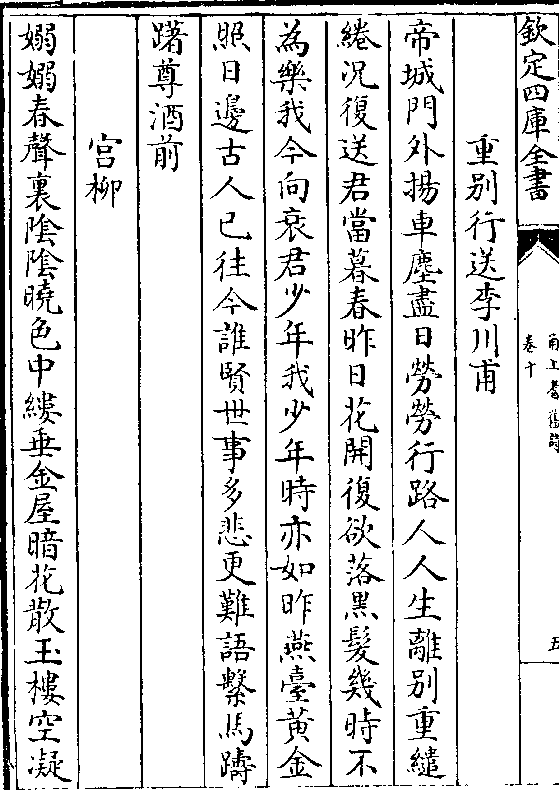 欽定四庫全書
卷十
五
重别行送李川甫
帝城門外揚車塵盡日勞勞行路人人生離别重繾
綣况復送君當暮春昨日花開復欲落黑髮幾時不
為樂我今向衰君少年我少年時亦如昨燕臺黄金
照日邊古人已往今誰賢世事多悲更難語繫馬躊
躇尊酒前
宫柳
嫋嫋春聲裏陰陰曉色中縷垂金屋暗花散玉樓空凝